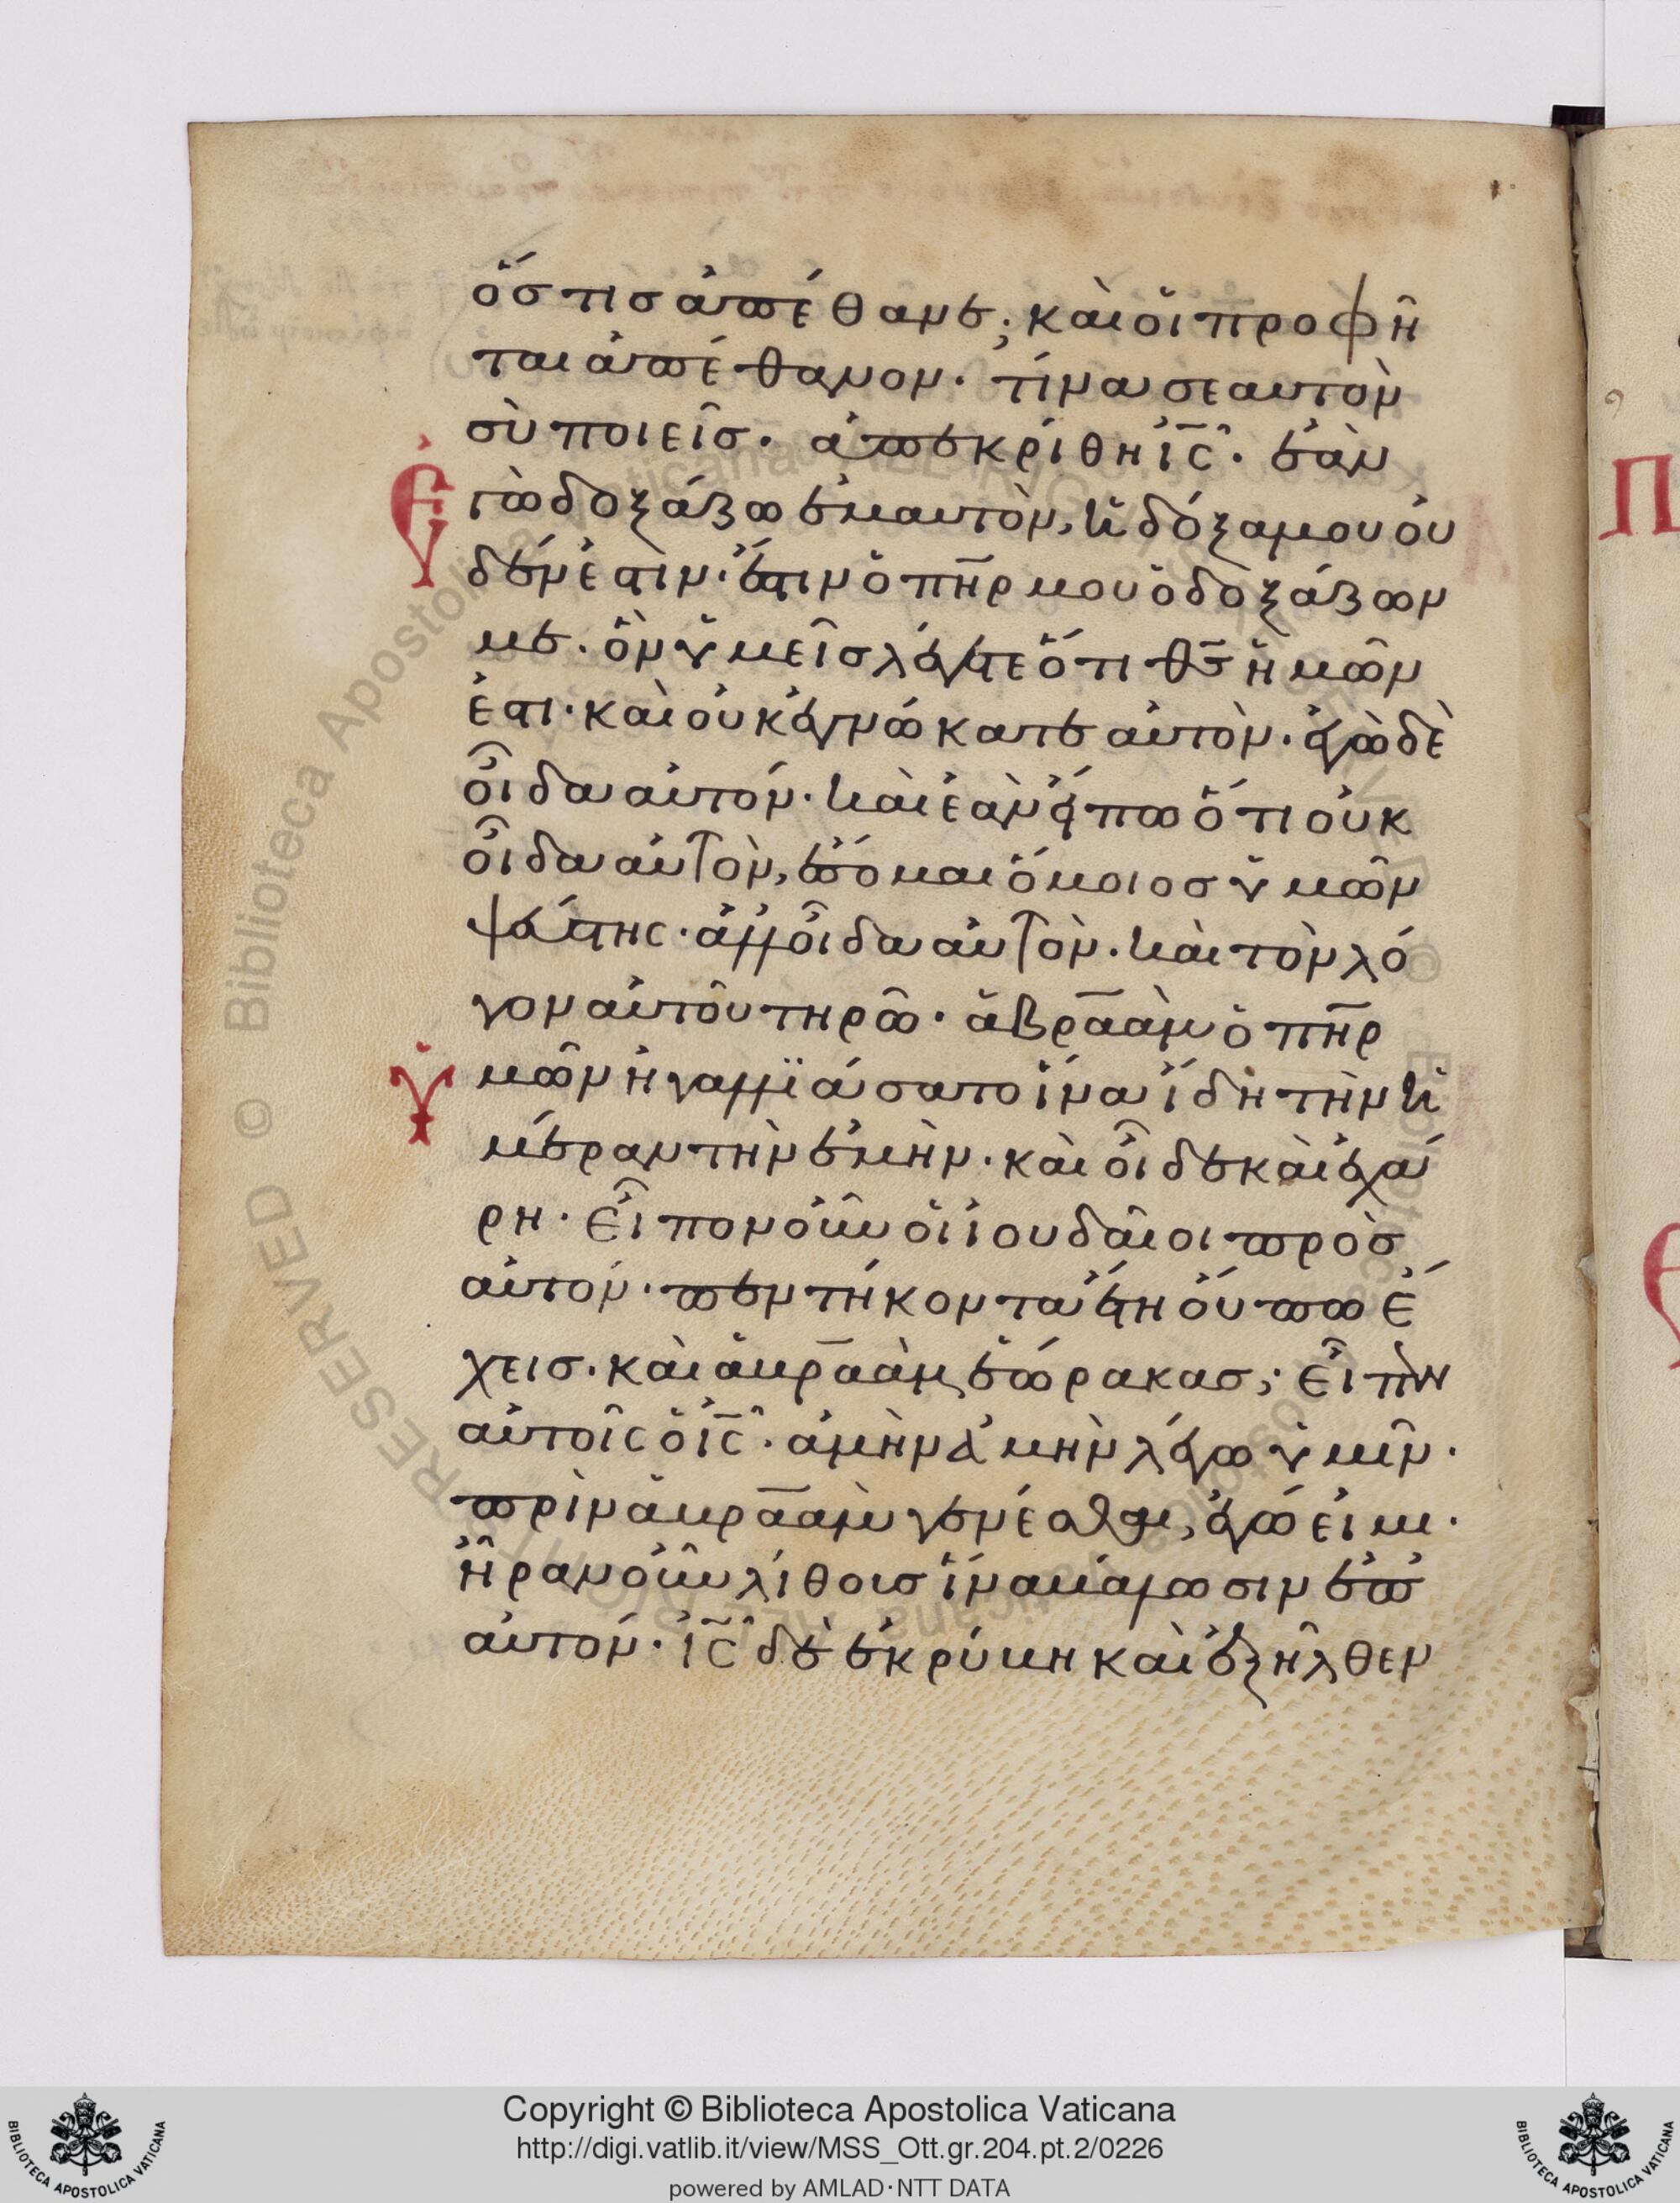 ὅστισ ἀπέθανε; καὶ οἱ προφῆ
ται ἀπέθανον· τίνα σεαυτὸν
σὺ ποιεῖσ· ἀπεκρίθη ἰ̅ς̅· ἐὰν
Ἐγὼ δοξάζω ἐμαυτὸν, ἡ δόξα μου οὐ
δέν ἐστιν· ἔστιν ὁ π̅η̅ρ μου ὁ δοξάζων
με· ὃν ὑμεῖσ λέγετε ὅτι θ̅σ̅ ἡμῶν
ἐστι· καὶ οὐκ ἐγνώκατε αὐτὸν· ἐγὼ δὲ
οἶδα αὐτόν· καὶ ἐὰν εἴπω ὅτι οὐκ
οἶδα αὐτὸν, ἔσομαι ὅμοιοσ ὑμῶν
ψεύστης· ἀλλ' οἶδα αὐτὸν· καὶ τὸν λό
γον αὐτοῦ τηρῶ· ἀβρ̅αὰμ ὁ π̅η̅ρ
ὑμῶν ἠγαλλϊάσατο ἵνα ἴδη τὴν ἡ
μέραν τὴν ἐμὴν· καὶ οἶδε καὶ ἐχά
ρη· Εἶπον οὖν οἱ ἰουδαῖοι πρὸσ
αὐτόν· πεντήκοντα ἔτη οὔπω ἔ
χεισ· καὶ ἀβρ̅αὰμ ἑώρακασ; Εἶπεν
αὐτοῖς ὁ ἰ̅ς̅· ἀμὴν ἀμὴν λέγω ὑμῖν·
πρὶν ἀβρ̅αὰμ γενέσθαι, ἐγώ εἰμι·
ἦραν οὖν λίθουσ ἵνα βάλωσιν ἐπ'
αὐτόν· ἰ̅ς̅ δὲ ἐκρύβη καὶ ἐξῆλθεν
Π
Ε
© Biblioteca Apostolica Vaticana
RESERVED
Copyright © Biblioteca Apostolica Vaticana
http://digi.vatlib.it/view/MSS_Ott.gr.204.pt.2/0226
powered by AMLAD·NTT DATA
BIBLIOTECA APOSTOLICA VATICANA
BIBLIOTECA APOSTOLICA VATICANA